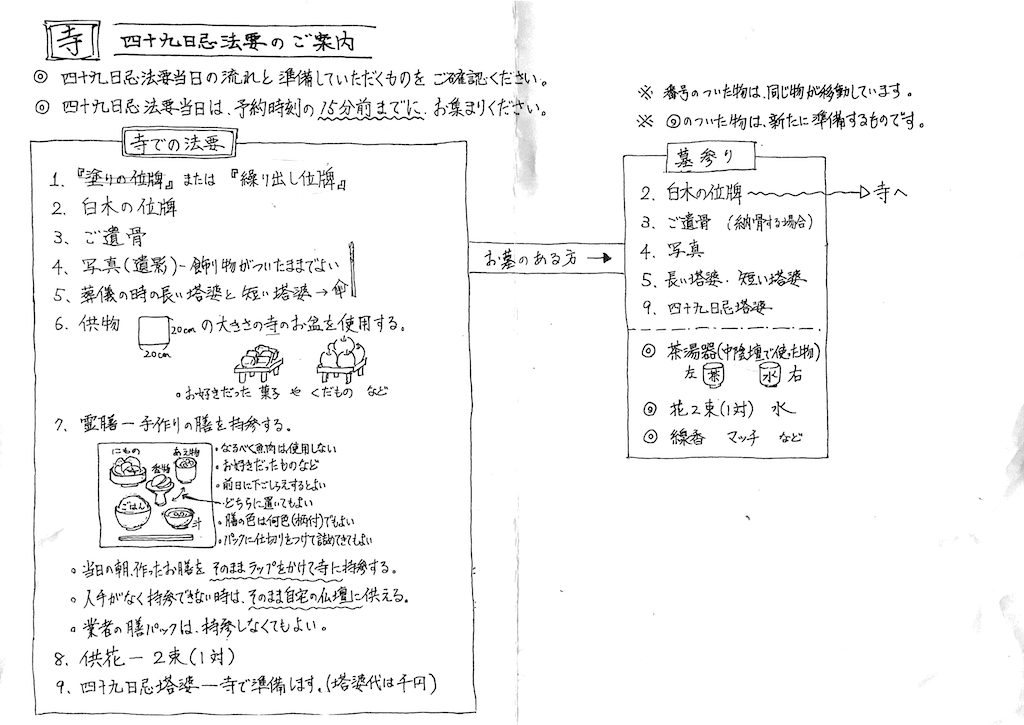 寺 四十九日忌法要のご案内
◎ 四十九日忌法要当日の流れと準備していただくものをご確認ください。
◎ 四十九日忌法要当日は、予約時刻の15分前までに、お集まりください。
寺での法要
1、『塗りの位牌』または『繰り出し位牌』
2、白木の位牌
3、ご遺骨
4、写真(遺影)-飾り物がついたままでよい
5、葬儀の時の長い塔婆と短い塔婆→
6、供物 20cm の大きさの寺のお盆を使用する。
20cm
・お好きだった菓子やくだものなど
7、霊膳-手作りの膳を持参する。
にもの
あえ物
香物
ごはん
汁
・なるべく魚肉は使用しない
・お好きだったものなど
・前日に下ごしらえするとよい
・どちらに置いてもよい
・膳の色は何色(柄付)でもよい
・パックに仕切りをつけて詰めてきてもよい
・当日の朝、作ったお膳をそのままラップをかけて寺に持参する。
・人手がなく持参できない時は、そのまま自宅の仏壇に供える。
・業者の膳パックは、持参しなくてもよい。
8、供花-2束(1対)
9、四十九日忌塔婆-寺で準備します。(塔婆代は千円)
お墓のある方→
※ 番号のついた物は、同じ物が移動しています。
※ ◎のついた物は、新たに準備するものです。
墓参り
2、白木の位牌 寺へ
3、ご遺骨 (納骨する場合)
4、写真
5、長い塔婆・短い塔婆
9、四十九日忌塔婆
◎ 茶湯器(中陰壇で使た物)
左 茶 水 右
◎ 花2束(1対) 水
◎ 線香 マッチ など